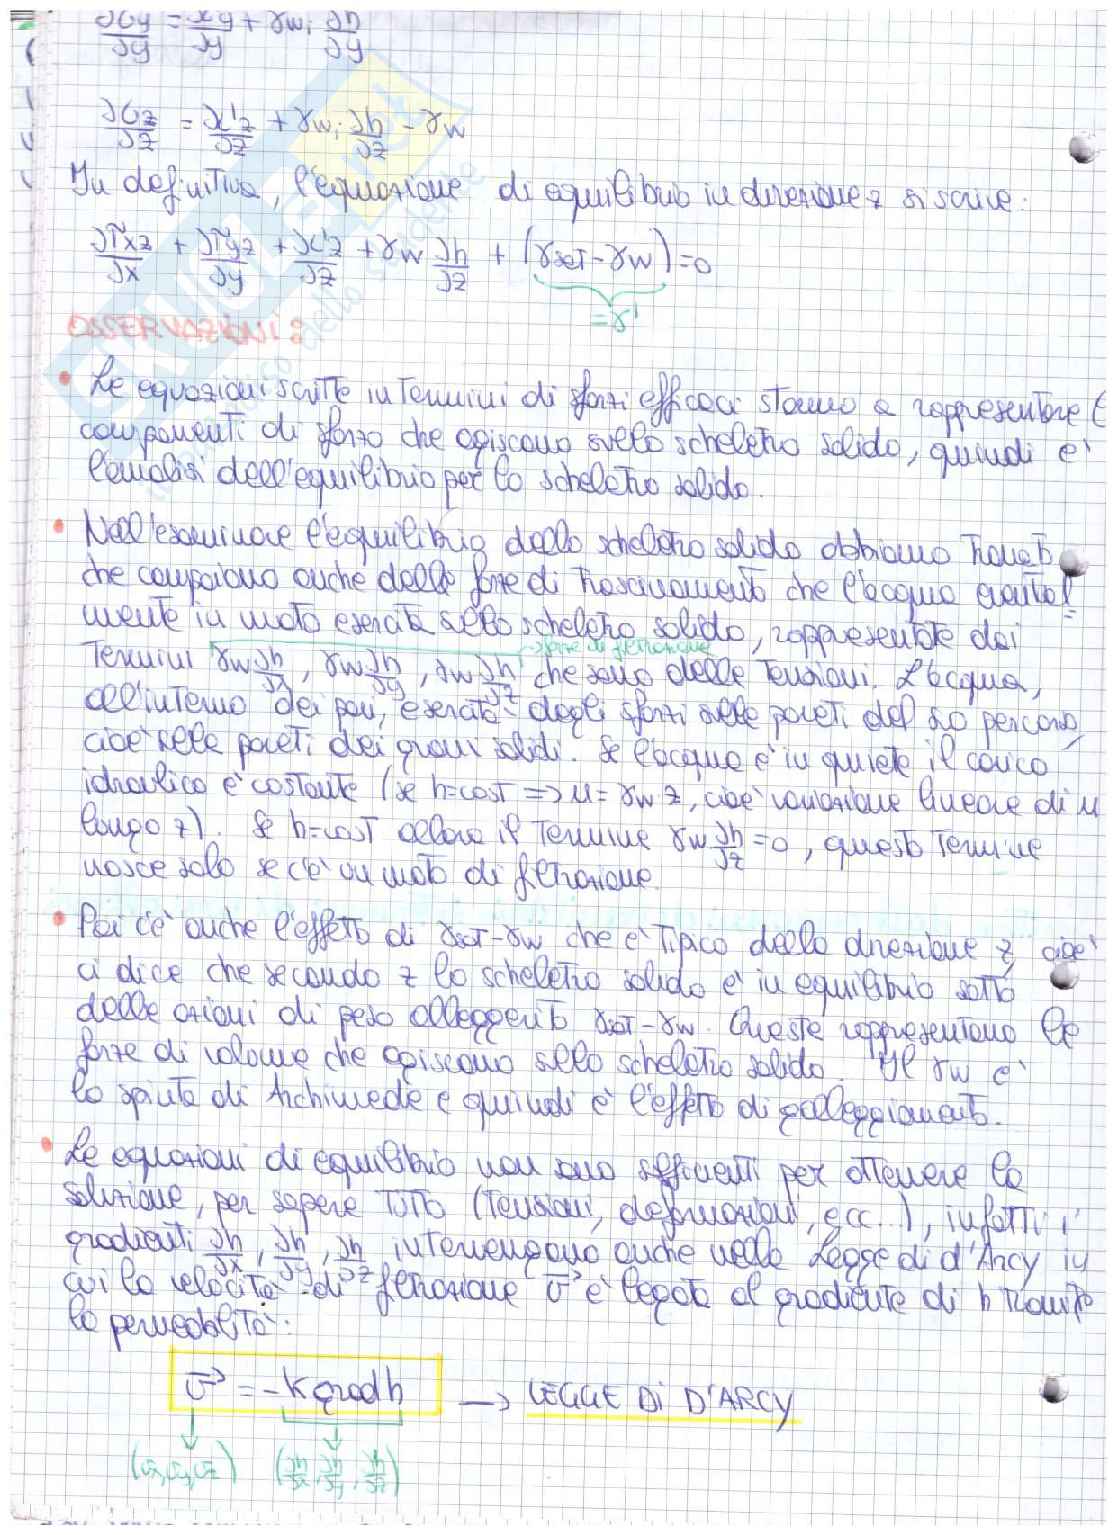 ∂σy/∂y = ∂σ'y/∂y + γw · ∂h/∂y
∂σz/∂z = ∂σ'z/∂z + γw · ∂h/∂z - γw
In definitiva, l'equazione di equilibrio in direzione z si scrive:
∂τxz/∂x + ∂τyz/∂y + ∂σ'z/∂z + γw ∂h/∂z + (γsat-γw) = 0
= γ'
OSSERVAZIONI:
• Le equazioni scritte in termini di sforzi efficaci stanno a rappresentare le
componenti di sforzo che agiscono sullo scheletro solido, quindi è
l'analisi dell'equilibrio per lo scheletro solido.
• Nell'esaminare l'equilibrio dello scheletro solido abbiamo trovato
che compaiono anche delle forze di trascinamento che l'acqua eventual=
mente in moto esercita sullo scheletro solido, rappresentate dai
→ forze di filtrazione
termini γw ∂h/∂x, γw ∂h/∂y, γw ∂h/∂z che sono delle tensioni. L'acqua,
all'interno dei pori, esercita degli sforzi sulle pareti del suo percorso,
cioè sulle pareti dei grani solidi. Se l'acqua è in quiete il carico
idraulico è costante (se h=cost => u= γw z, cioè variazione lineare di u
lungo z). Se h=cost allora il termine γw ∂h/∂z =0, questo termine
nasce solo se c'è un moto di filtrazione.
• Poi c'è anche l'effetto di γsat-γw che è tipico della direzione z, cioè
ci dice che secondo z lo scheletro solido è in equilibrio sotto
delle azioni di peso alleggerito γsat-γw. Queste rappresentano le
forze di volume che agiscono sullo scheletro solido. Il γw è
la spinta di Archimede e quindi è l'effetto di galleggiamento.
• Le equazioni di equilibrio non sono sufficienti per ottenere la
soluzione, per sapere tutto (tensioni, deformazioni, ecc...), infatti i
gradienti ∂h/∂x, ∂h/∂y, ∂h/∂z intervengono anche nella Legge di d'Arcy in
cui la velocità di filtrazione v→ è legata al gradiente di h tramite
la permeabilità:
v→ = -K grad h → LEGGE DI D'ARCY
(vx,vy,vz) (∂h/∂x, ∂h/∂y, ∂h/∂z)